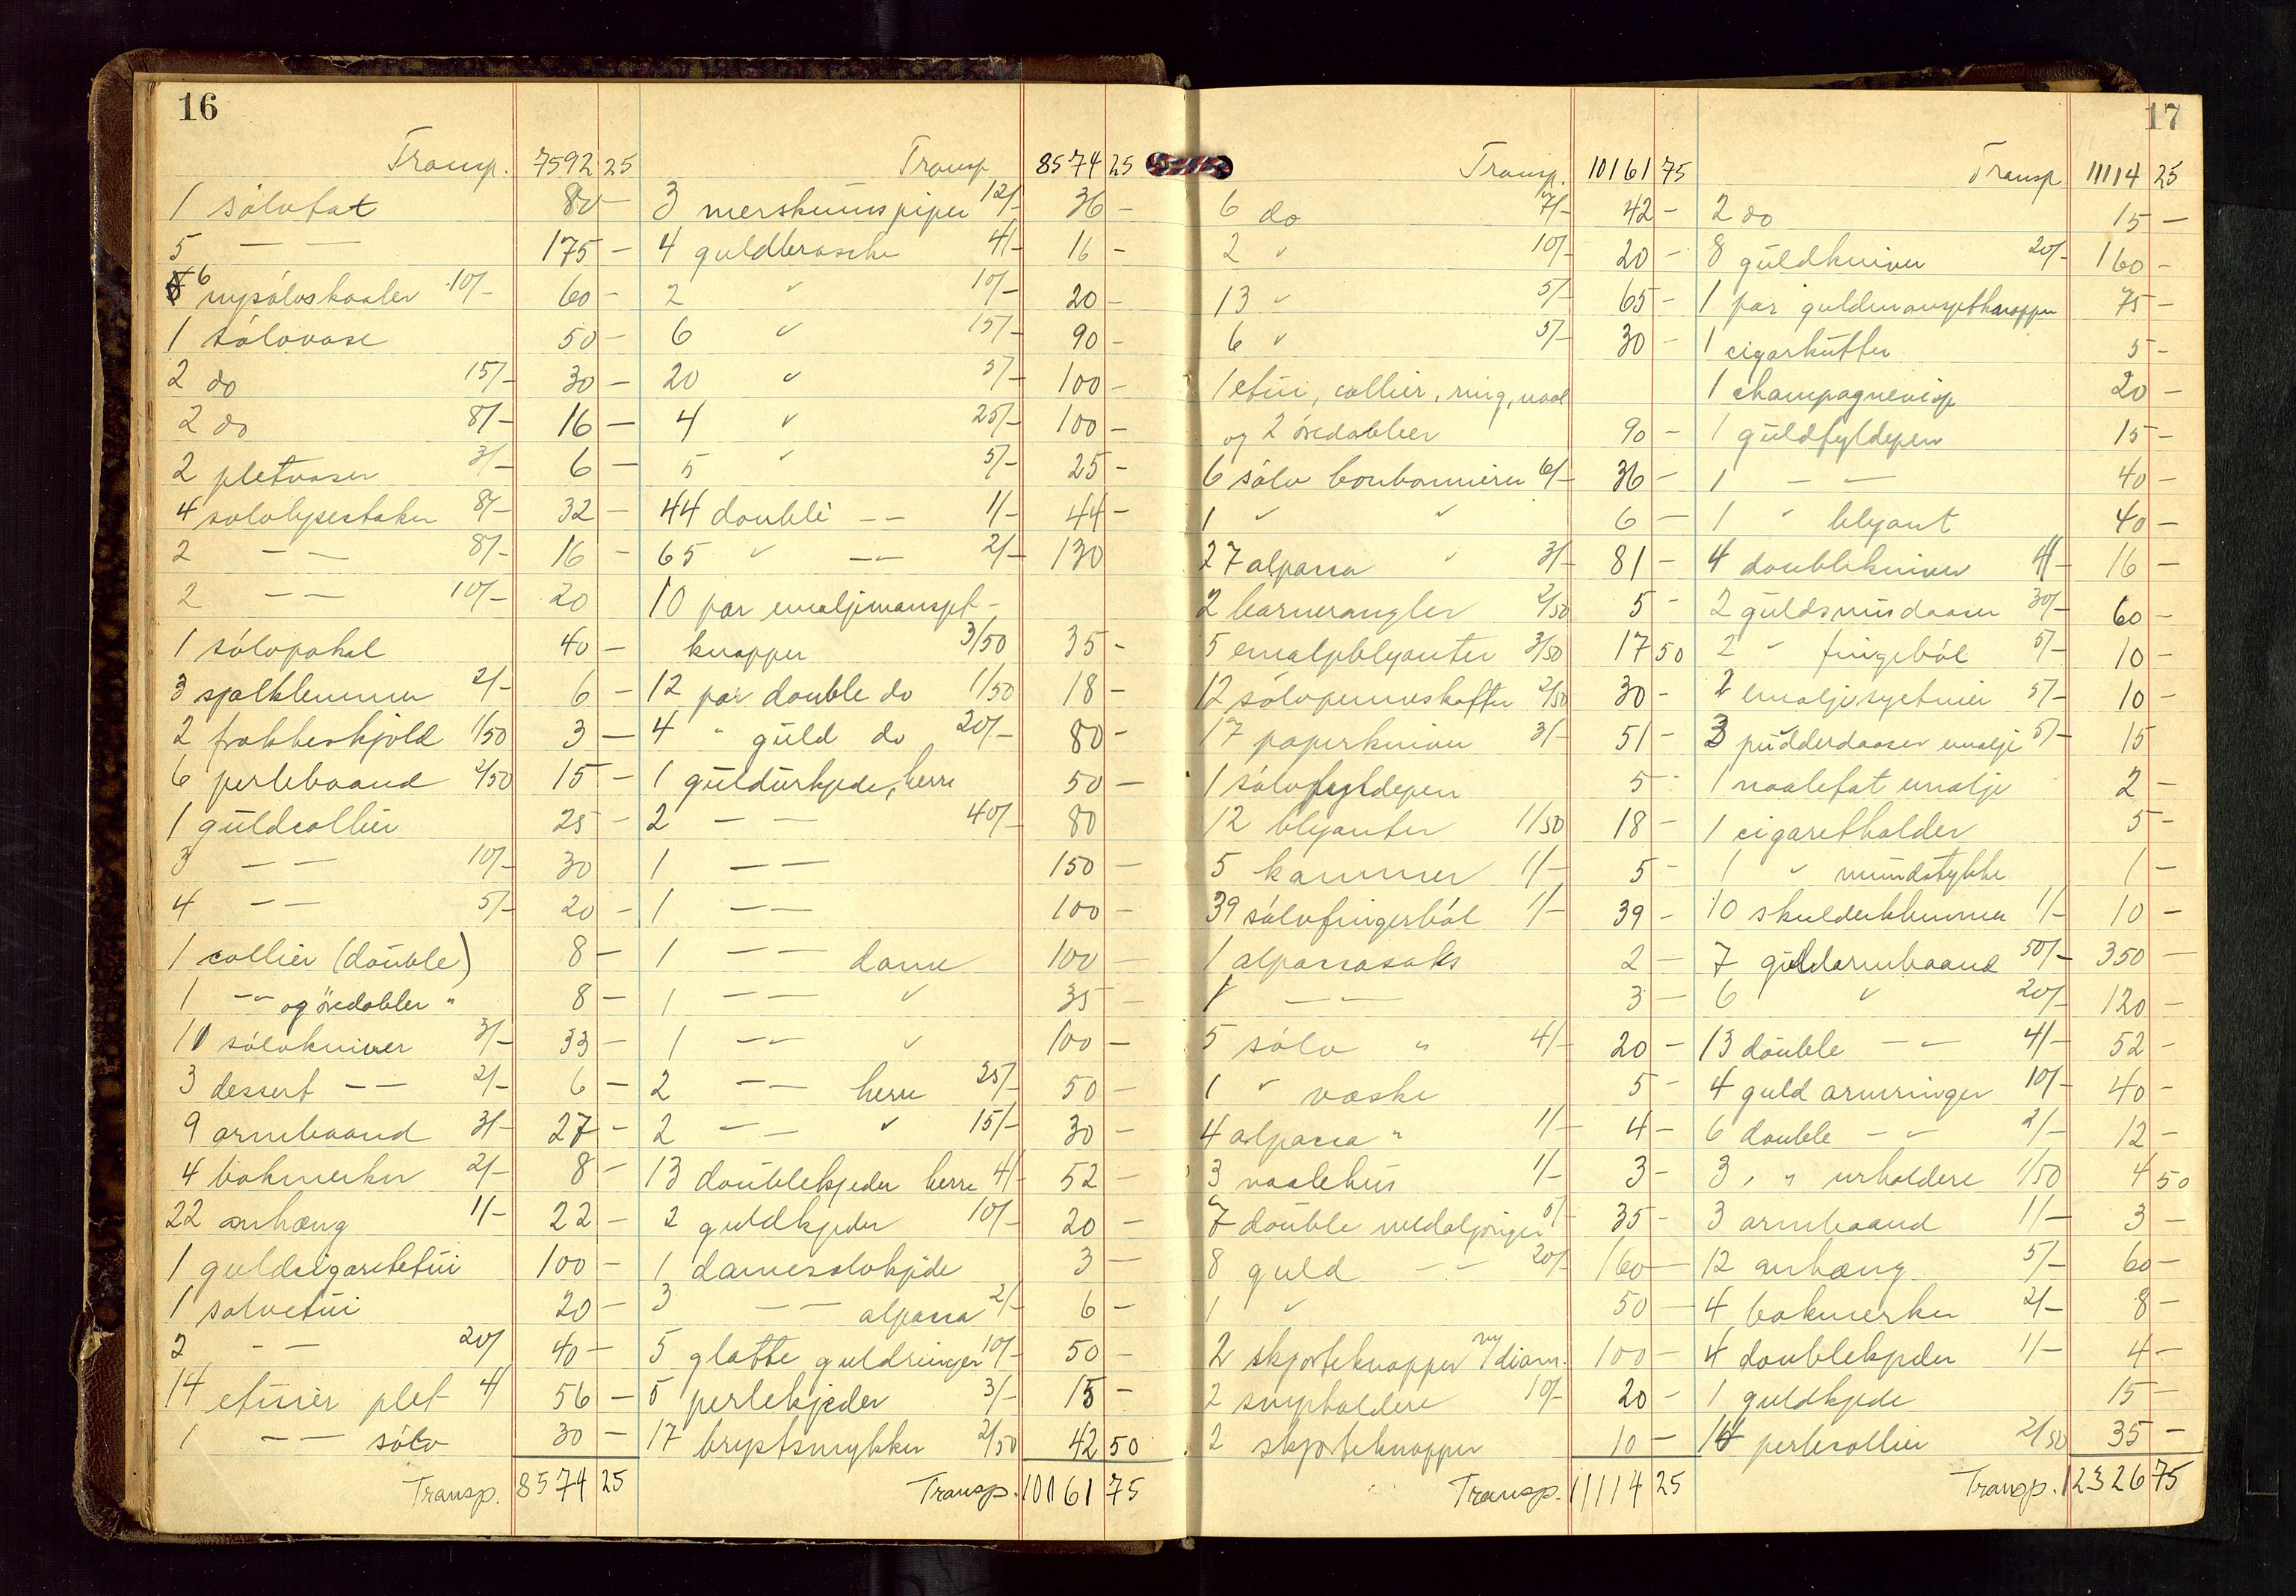 16
Transp. 7592 25
1 sølvfat 80 –
5 — — 175 –
6 nysølvskaaler 10/- 60 –
1 sølvvase 50 –
2 do 15/- 30 –
2 do 8/- 16 –
2 pletvaser 3/- 6 –
4 sølvlysestaker 8/- 32 –
2 — — 8/- 16 –
2 — — 10/- 20
1 sølvpokal 40 –
3 sjalklemmer 2/- 6 –
2 frakkeskjold 1/50 3 –
6 perlebaand 2/50 15 –
1 guldcollier 25 –
3 — — 10/- 30
4 — — 5/- 20 –
1 collier (double) 8 –
1 — og øredobler " 8 –
11 sølvkniver 3/- 33 –
3 dessert — — 2/- 6 –
9 armbaand 3/- 27 –
4 bokmerker 2/- 8 –
22 anhæng 1/- 22 –
1 guldcigaretetui 100 –
1 sølvetui 20 –
2 — — 20/ 40 –
14 etuier plet 4/ 56 –
1 — — sølv 30 –
Transp. 8574 25
Transp 8574 25
3 merskumspiper 12/- 36 –
4 guldbrosche 4/- 16 –
2 " 10/- 20 –
6 " 15/- 90 –
20 " 5/- 100 –
4 " 25/- 100 –
5 " 5/- 25 –
44 double — — 1/- 44 –
65 " — — 2/- 130
10 par emaljemansjet-
knapper 3/50 35 –
12 par double do 1/50 18 –
4 " guld do 20/- 80 –
1 guldurkjede, herre 50 –
2 — — 40/- 80
1 — — 150 –
1 — — 100 –
1 — — dame 100 –
1 — — " 35 –
1 — — " 100 –
2 — — herre 25/- 50 –
2 — — " 15/- 30 –
13 doublekjeder herre 4/ 52 –
2 guldkjeder 10/- 20 –
1 damesølvkjede 3 –
3 — — alpacca 2/- 6 –
5 glatte guldringer 10/- 50 –
5 perlekjeder 3/- 15 –
17 brystsmykker 2/50 42 50
Transp. 10161 75
Transp. 10161 75
6 do 7/- 42 –
2 " 10/- 20 –
13 " 5/- 65 –
6 " 5/- 30 –
1 etui, collier, ring, naal
og 2 øredobber 90 –
6 sølv bonbonnierer 6/- 36 –
1 " " 6 –
27 alpacca " 3/- 81 –
2 barnerangler 2/50 5 –
5 emaljeblyanter 3/50 17 50
12 sølvpenneskafter 2/50 30 –
17 papirkniver 3/- 51 –
1 sølvfyldepen 5 –
12 blyanter 1/50 18 –
5 kammer 1/- 5 –
39 sølvfingerbøl 1/- 39 –
1 alpaccasaks 2 –
1 — — 3 –
5 sølv " 4/- 20 –
1 " vaske 5 –
4 alpacca " 1/- 4 –
3 naalehus 1/- 3 –
7 double medaljonger 5/- 35 –
8 guld — — 20/- 160 –
1 " 50 –
2 skjorteknapper m/ diam. 100 –
2 snipholdere 10/- 20 –
2 skjorteknapper 10 –
Transp. 11114 25
17
Transp 11114 25
2 do 15 –
8 guldkniver 20/- 160 –
1 par guldmansjetknapper 75 –
1 cigarkutter 5 –
1 champagnevisp 20 –
1 guldfyldepen 15 –
1 — — 40 –
1 " blyant 40 –
4 doublekniver 4/- 16 –
2 guldsnusdaaser 30/- 60 –
2 " fingerbøl 5/- 10 –
2 emaljesyetuier 5/- 10 –
3 pudderdaaser emalje 5/- 15
1 naalefat emalje 2 –
1 cigaretholder 5 –
1 " mundstykke 1 –
10 skulderklemmer 1/- 10 –
7 guldarmbaand 50/- 350 –
6 " 20/- 120 –
13 double — — 4/- 52 –
4 guld armringer 10/- 40 –
6 double — — 2/- 12 –
3 " " urholdere 1/50 4 50
3 armbaand 1/- 3 –
12 anhæng 5/- 60 –
4 bokmerker 2/- 8 –
4 doublekjeder 1/- 4 –
1 guldkjede 15 –
14 perlecollier 2/50 35 –
Transp. 12326 75